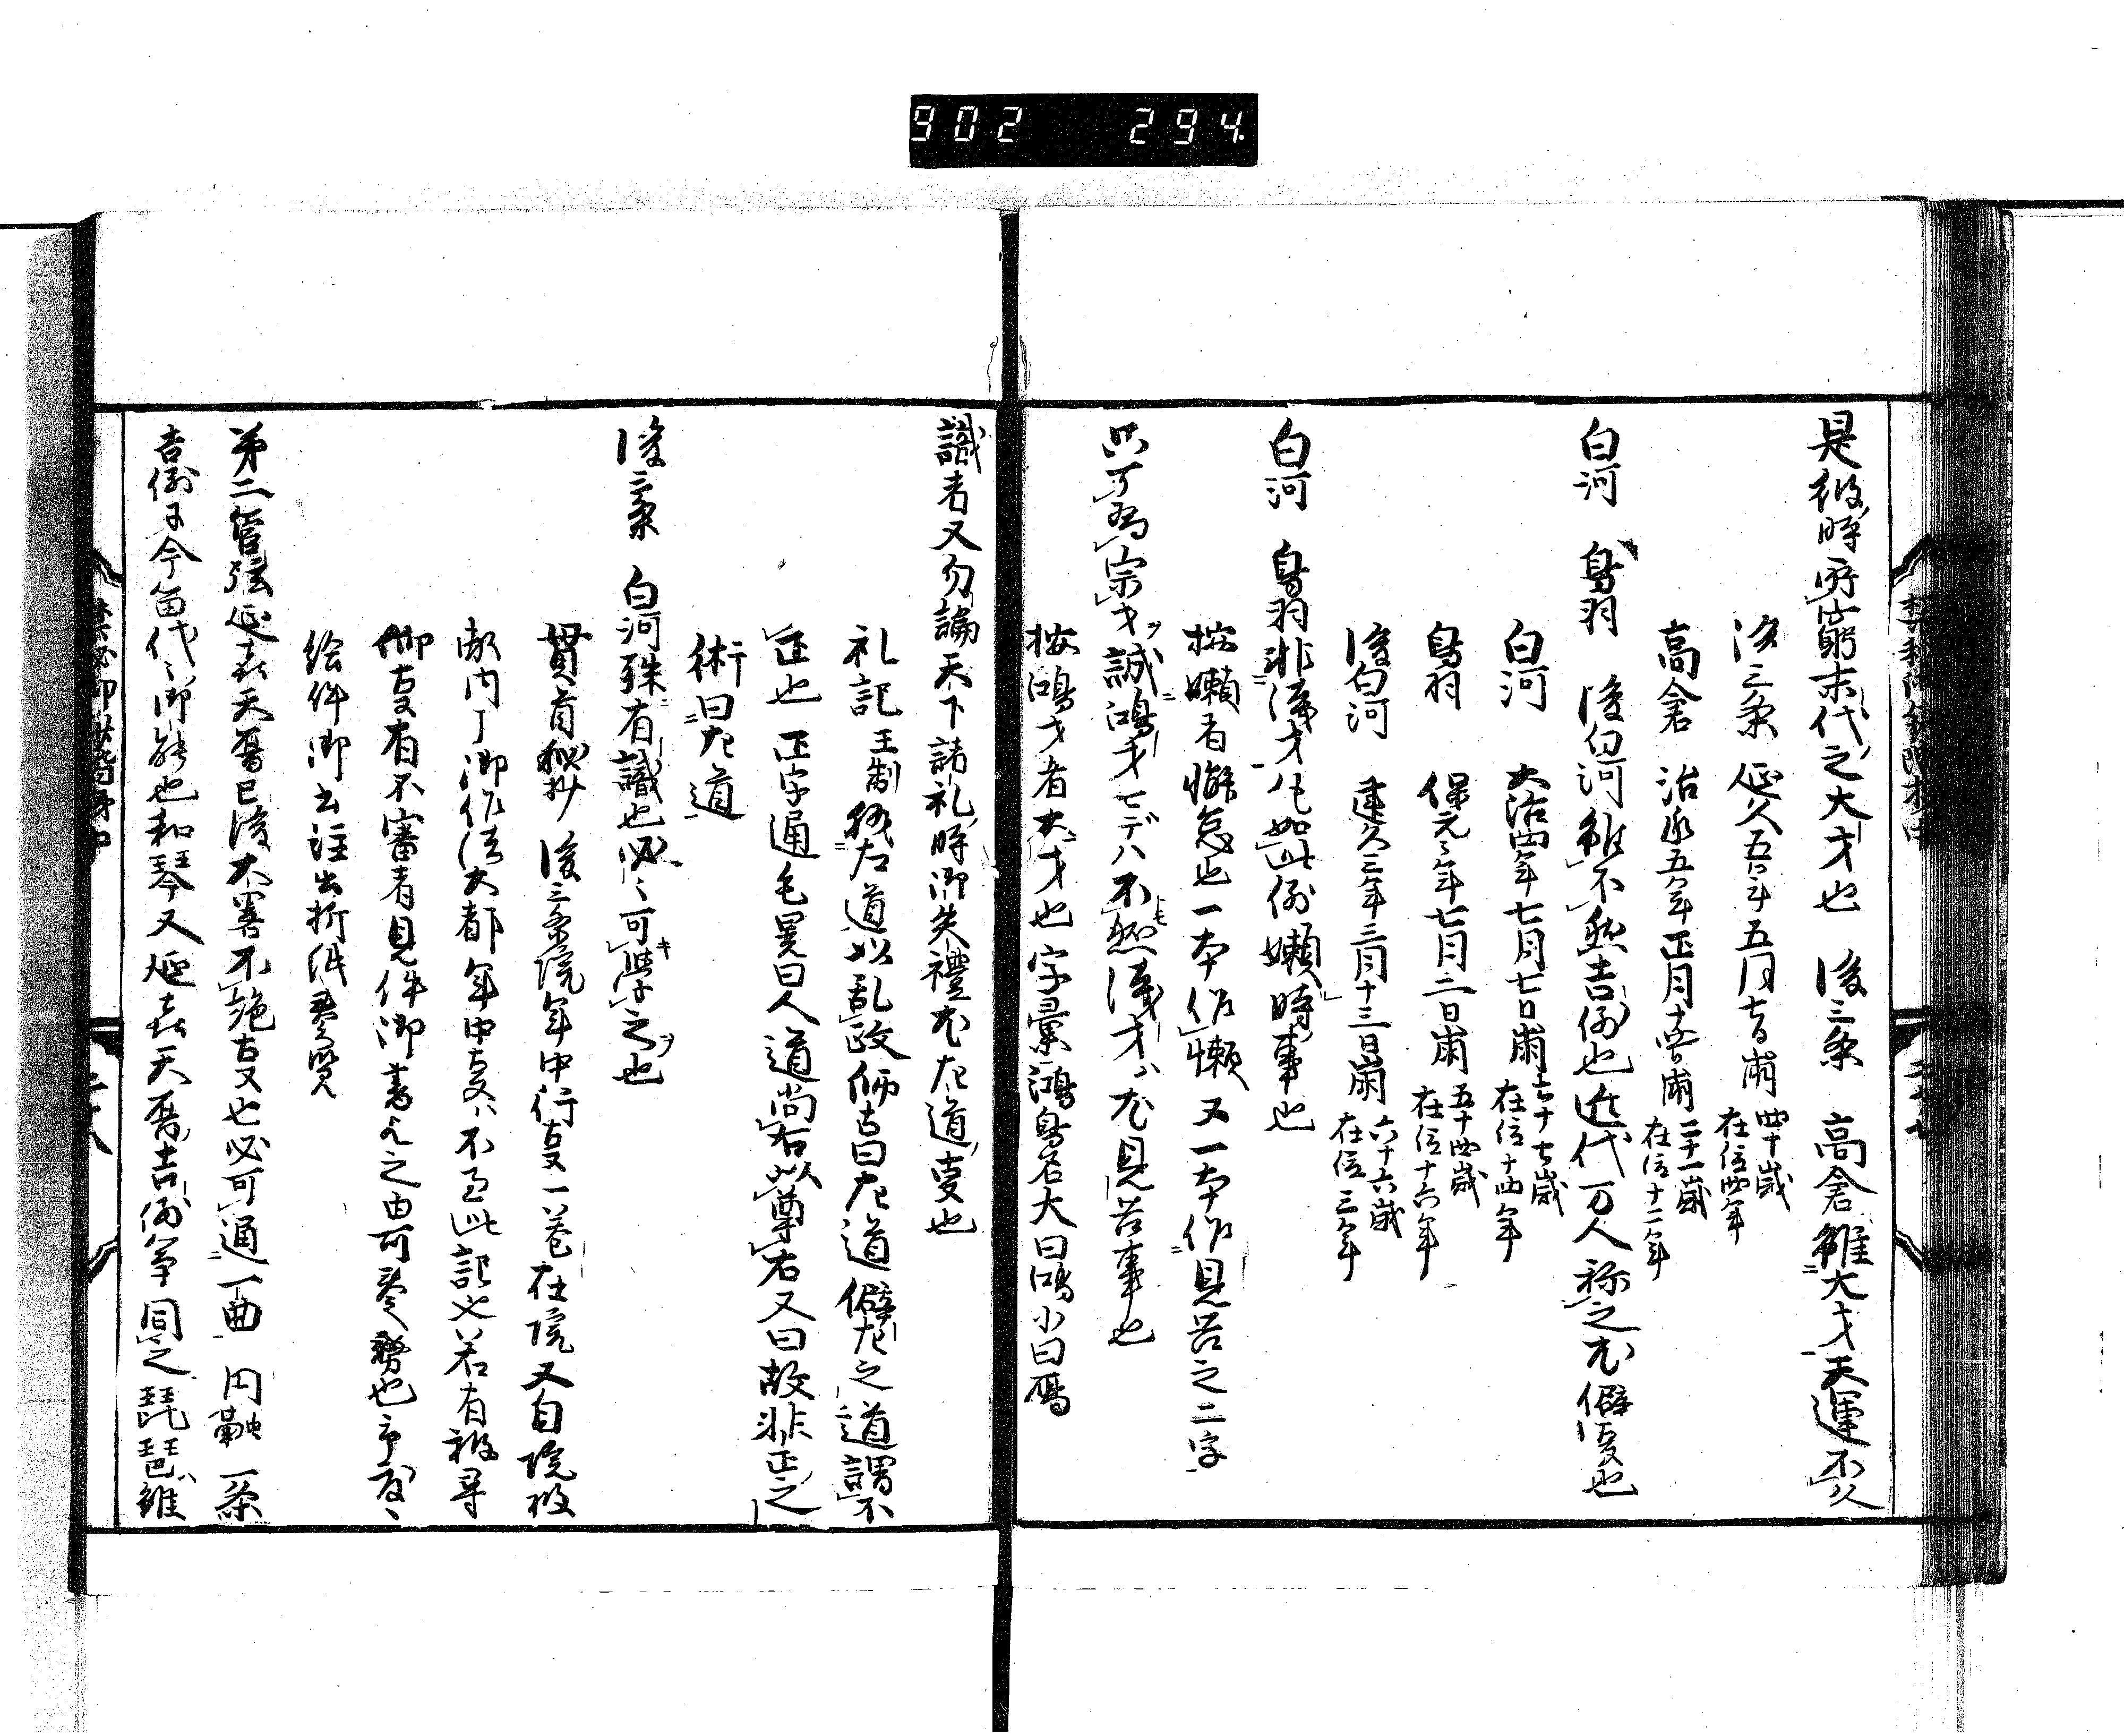 902 294.
是彼時所亡躬末代之大才也 後三条 高倉雖大才天運不久
後三条 延久五年五月七日崩 四十歳 在位四年
高倉 治承五年正月十四日崩 二十一歳 在位十二年
白河 鳥羽 後白河雖不然吉例也近代万人称之尤僻叓也
白河 大治四年七月七日崩 七十七歳 在位十四年
鳥羽 保元々年七月二日崩 五十四歳 在位十六年
後白河 建久三年三月十三日崩 六十六歳 在位三年
白河 鳥羽非浅才凡如此例嬾時事也
按嬾者懈怠也一本作懶又一本作見苦之二字
只可為宗才ヲ誠鴻才モデハ不然トモ浅才ハ尤見苦事也
按鴻才者大才也字彙鴻鳥名大曰鴻小曰鴈
識者又勿論天下諸礼時御失禮尤左道叓也
礼記王制執左道以乱政𠇾古曰左道僻左之道謂不
正也正字通毛晃曰人道尚右以尊右又曰故非正之
術曰左道
後三条 白河殊有識也必々可学之也
貫首秘抄後三条院年中行叓一巻在院又自院被
献内了御作法大都年中叓ハ不過此記也若有被尋
仰叓有不審者見件御書之由可奏聞也予度々
給件御書注出折紙奏覧
第二管弦延喜天暦已後大略不絶叓也必可通一曲 円融 一条
吉例于今笛代々御能也和琴又延喜天暦吉例筝同之琵琶雖
禁秘御抄階梯中